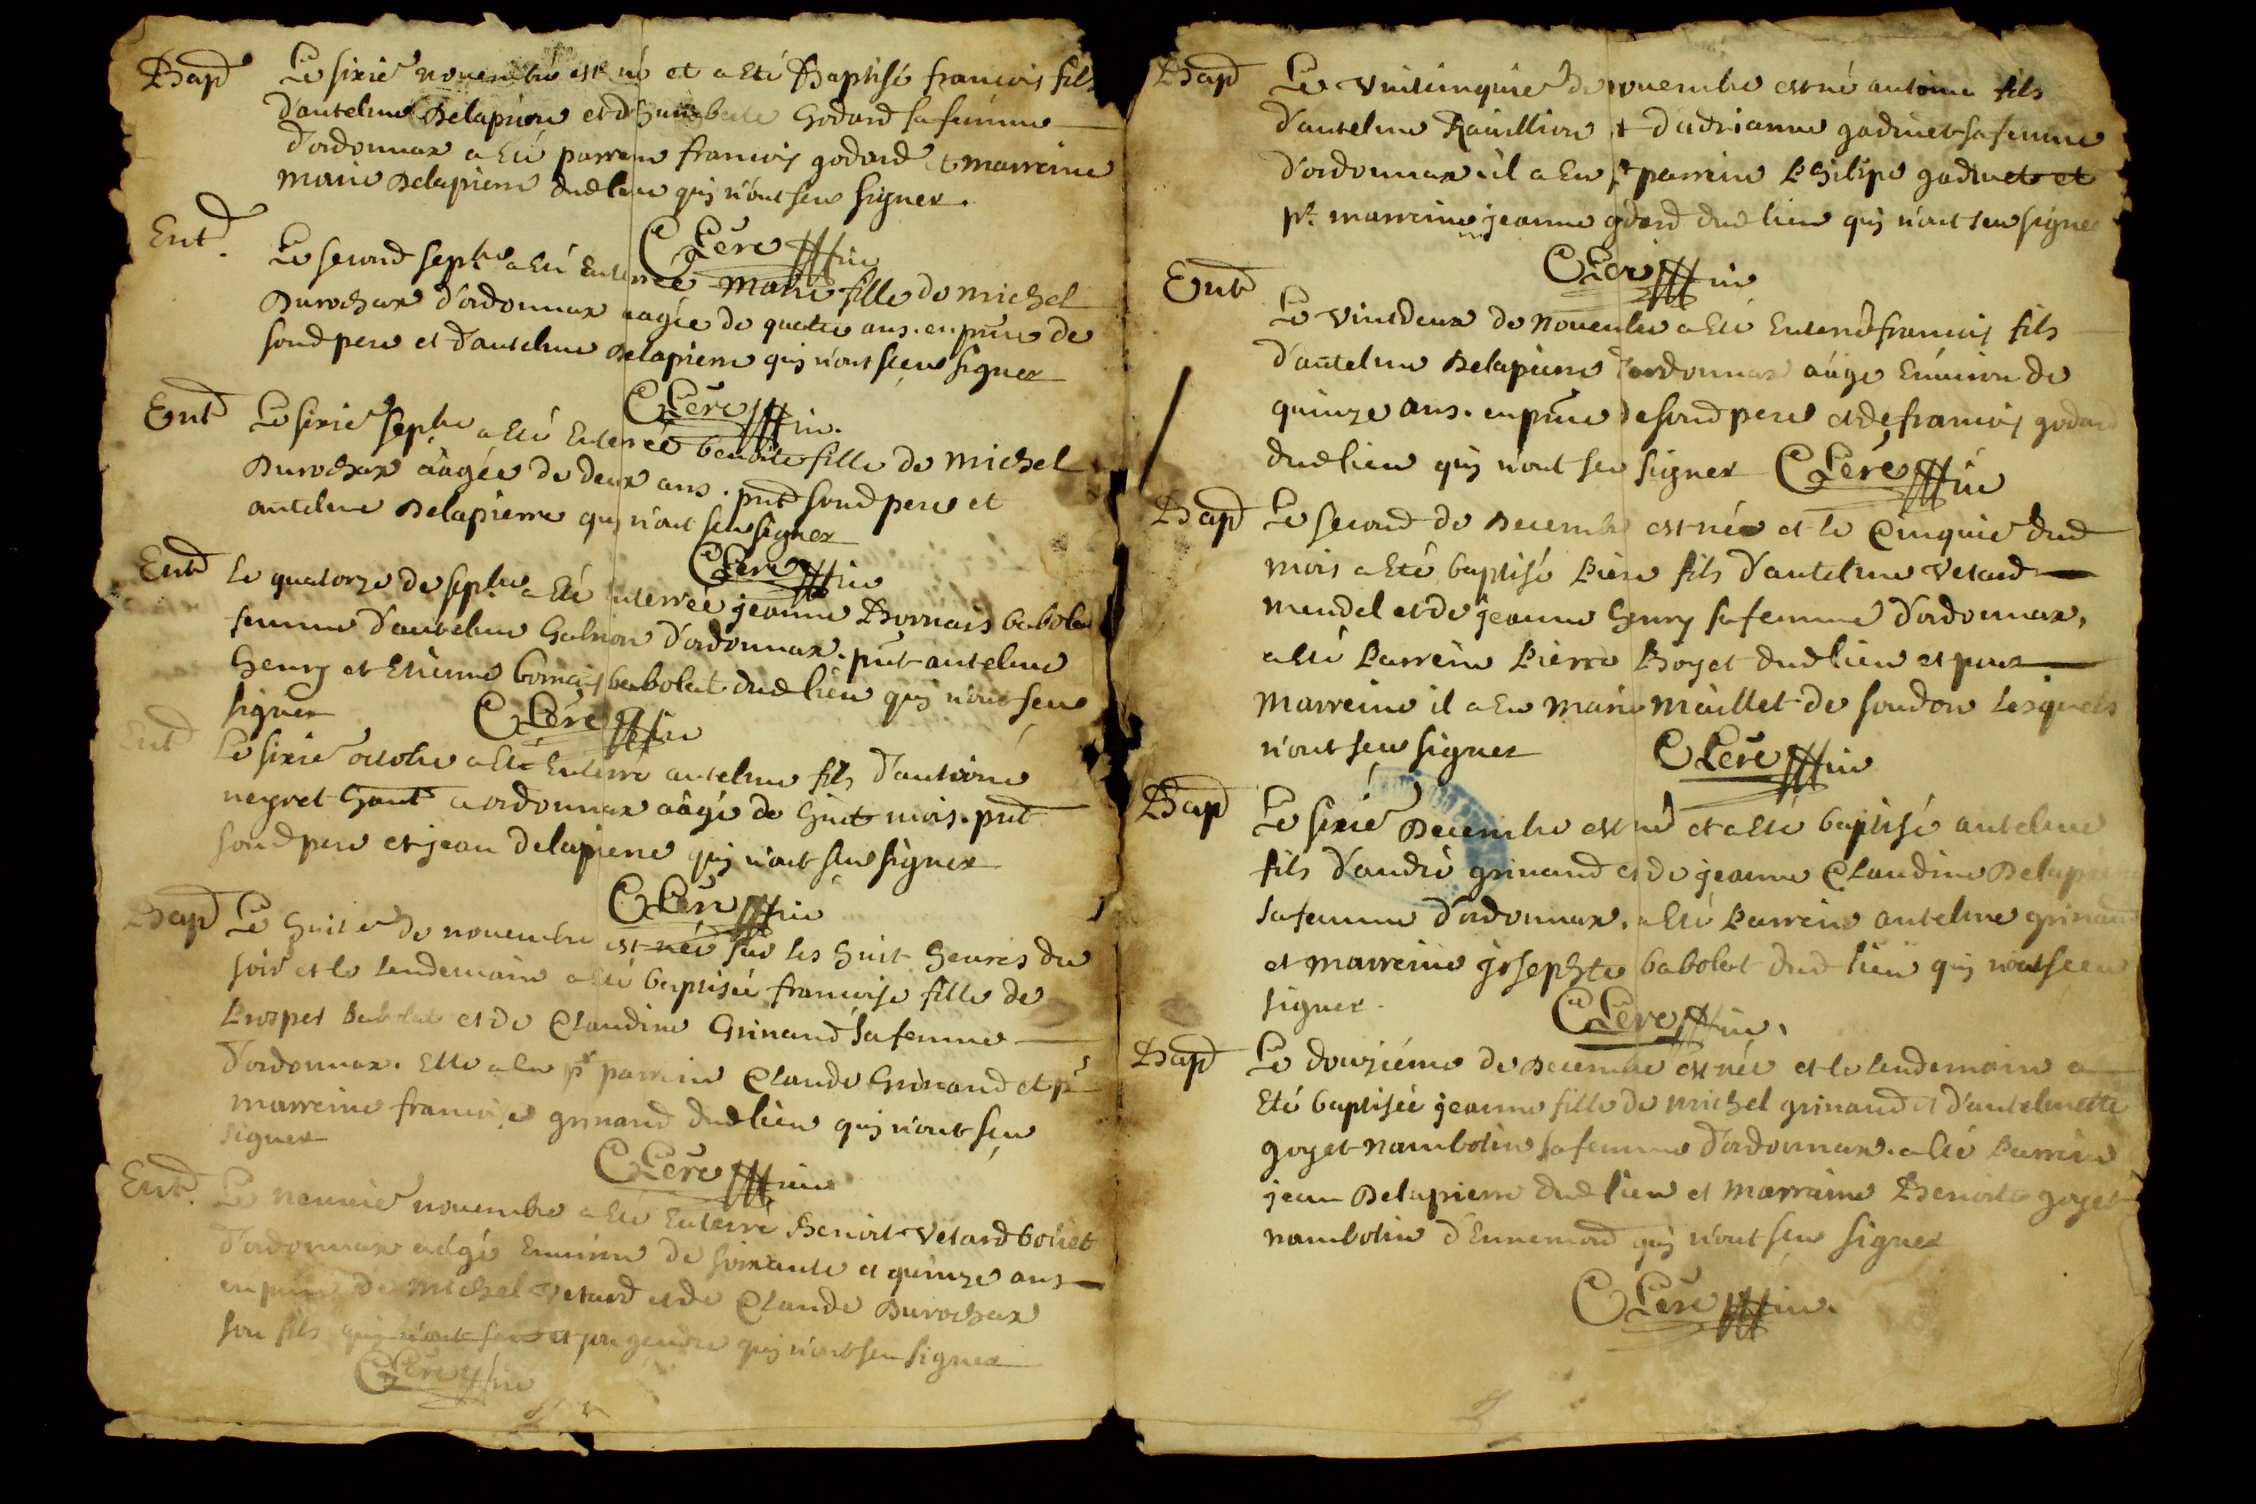 Bap Le sixie novembre est né et a Eté Baptisé francois fils
d'antelme Delapierre et d' Godard sa femme
d'ordonnax a Eté parrein francois godard et marreine
marie Delapierre dud lieu quj n'ont sceu signer.
Clerc
Ent Le second sepbre a Eté Enterrée marie fille de michel
Durochax d'ordonnax aagée de quatre ans. en pnce de
sond pere et d'antelme Delapierre quj n'ont sceu signer
Clerc
Ent Le sixie sepbre a Eté Enterrée benoite fille de michel
Durochax aagée de deux ans. pnt sond pere et
antelme Delapierre quj n'ont seu signer
Clerc
Ent le quatorze de sepbre a Eté enterrée jeanne Bornais babolat
femme d'antelme d'ordonnax. pnt antelme
henry et Etienne bornais babolat dud lieu quj n'ont seu
signer Clerc
Ent Le sixie octobre a Eté Enterré antelme fils d'antoine
neyret hant a ordonnax aagé de huit mois. pnt
sond pere et jean delapierre quj n'ont seu signer
Clerc
Bap Le huit e de novembre est née sur les huit heures du
soir et le lendemain a Eté baptisée francoise fille de
Prosper babolat et de Claudine Grinand sa femme
d'ordonnax. Elle a Eu pr parrein Claude Grinand et pr
marreine francoise grinand dud lieu quj n'ont seu
signer
Clerc
Ent. Le neuvie novembre a Eté Enterré Benoit Vetard
d'ordonnax aagé Environ de soixante et quinze ans
en pnce de michel Vetard et de Claude Durochax
son fils quj n'ont seu et son gendre quj n'ont seu signer
Clerc
Bap Le vintcinquie de novembre est né antoine fils
d'antelme Ravillion et d'adrianne godinet sa femme
d'ordonnax il a Eu pr parrein Philipe godinet et
pr. marreine jeanne godard dud lieu quj n'ont seu signer
Clerc
Ent Le vintdeux de Novembre a Eté Enterré francois fils
d'antelme Delapierre d'ordonnax aagé Environ de
quinze ans. en pnce de sond pere et de francois godard
dud lieu quj n'ont seu signer Clerc
Bap Le second de Decembre est née et le Cinquie dud
mois a Eté baptisé Piere fils d'antelme Vetard
mendel et de jeanne henry sa femme d'ordonnax,
a Eté Parrein Pierre Boyet dud lieu et pour
Marreine il a Eu marie maillet de soudon lesquels
n'ont seu signer Clerc
Bap Le sixié Decembre est né et a Eté baptisé antelme
fils d'andré grinand et de jeanne Claudine Delapierre
sa femme d'ordonnax. a Eté Parrein antelme grinand
et marreine josephte babolat dud lieu quj n'ont sceu
signer.
Clerc
Bap Le douziéme de Decembre est née et le lendemain a
Eté baptisée jeanne fille de michel grinand et d'antelmette
goyet nambotin sa femme d'ordonnax. a Eté Parrein
jean Delapierre dud lieu et marraine Benoite goyet
nambotin d'Ennemond quj n'ont seu signer
Clerc